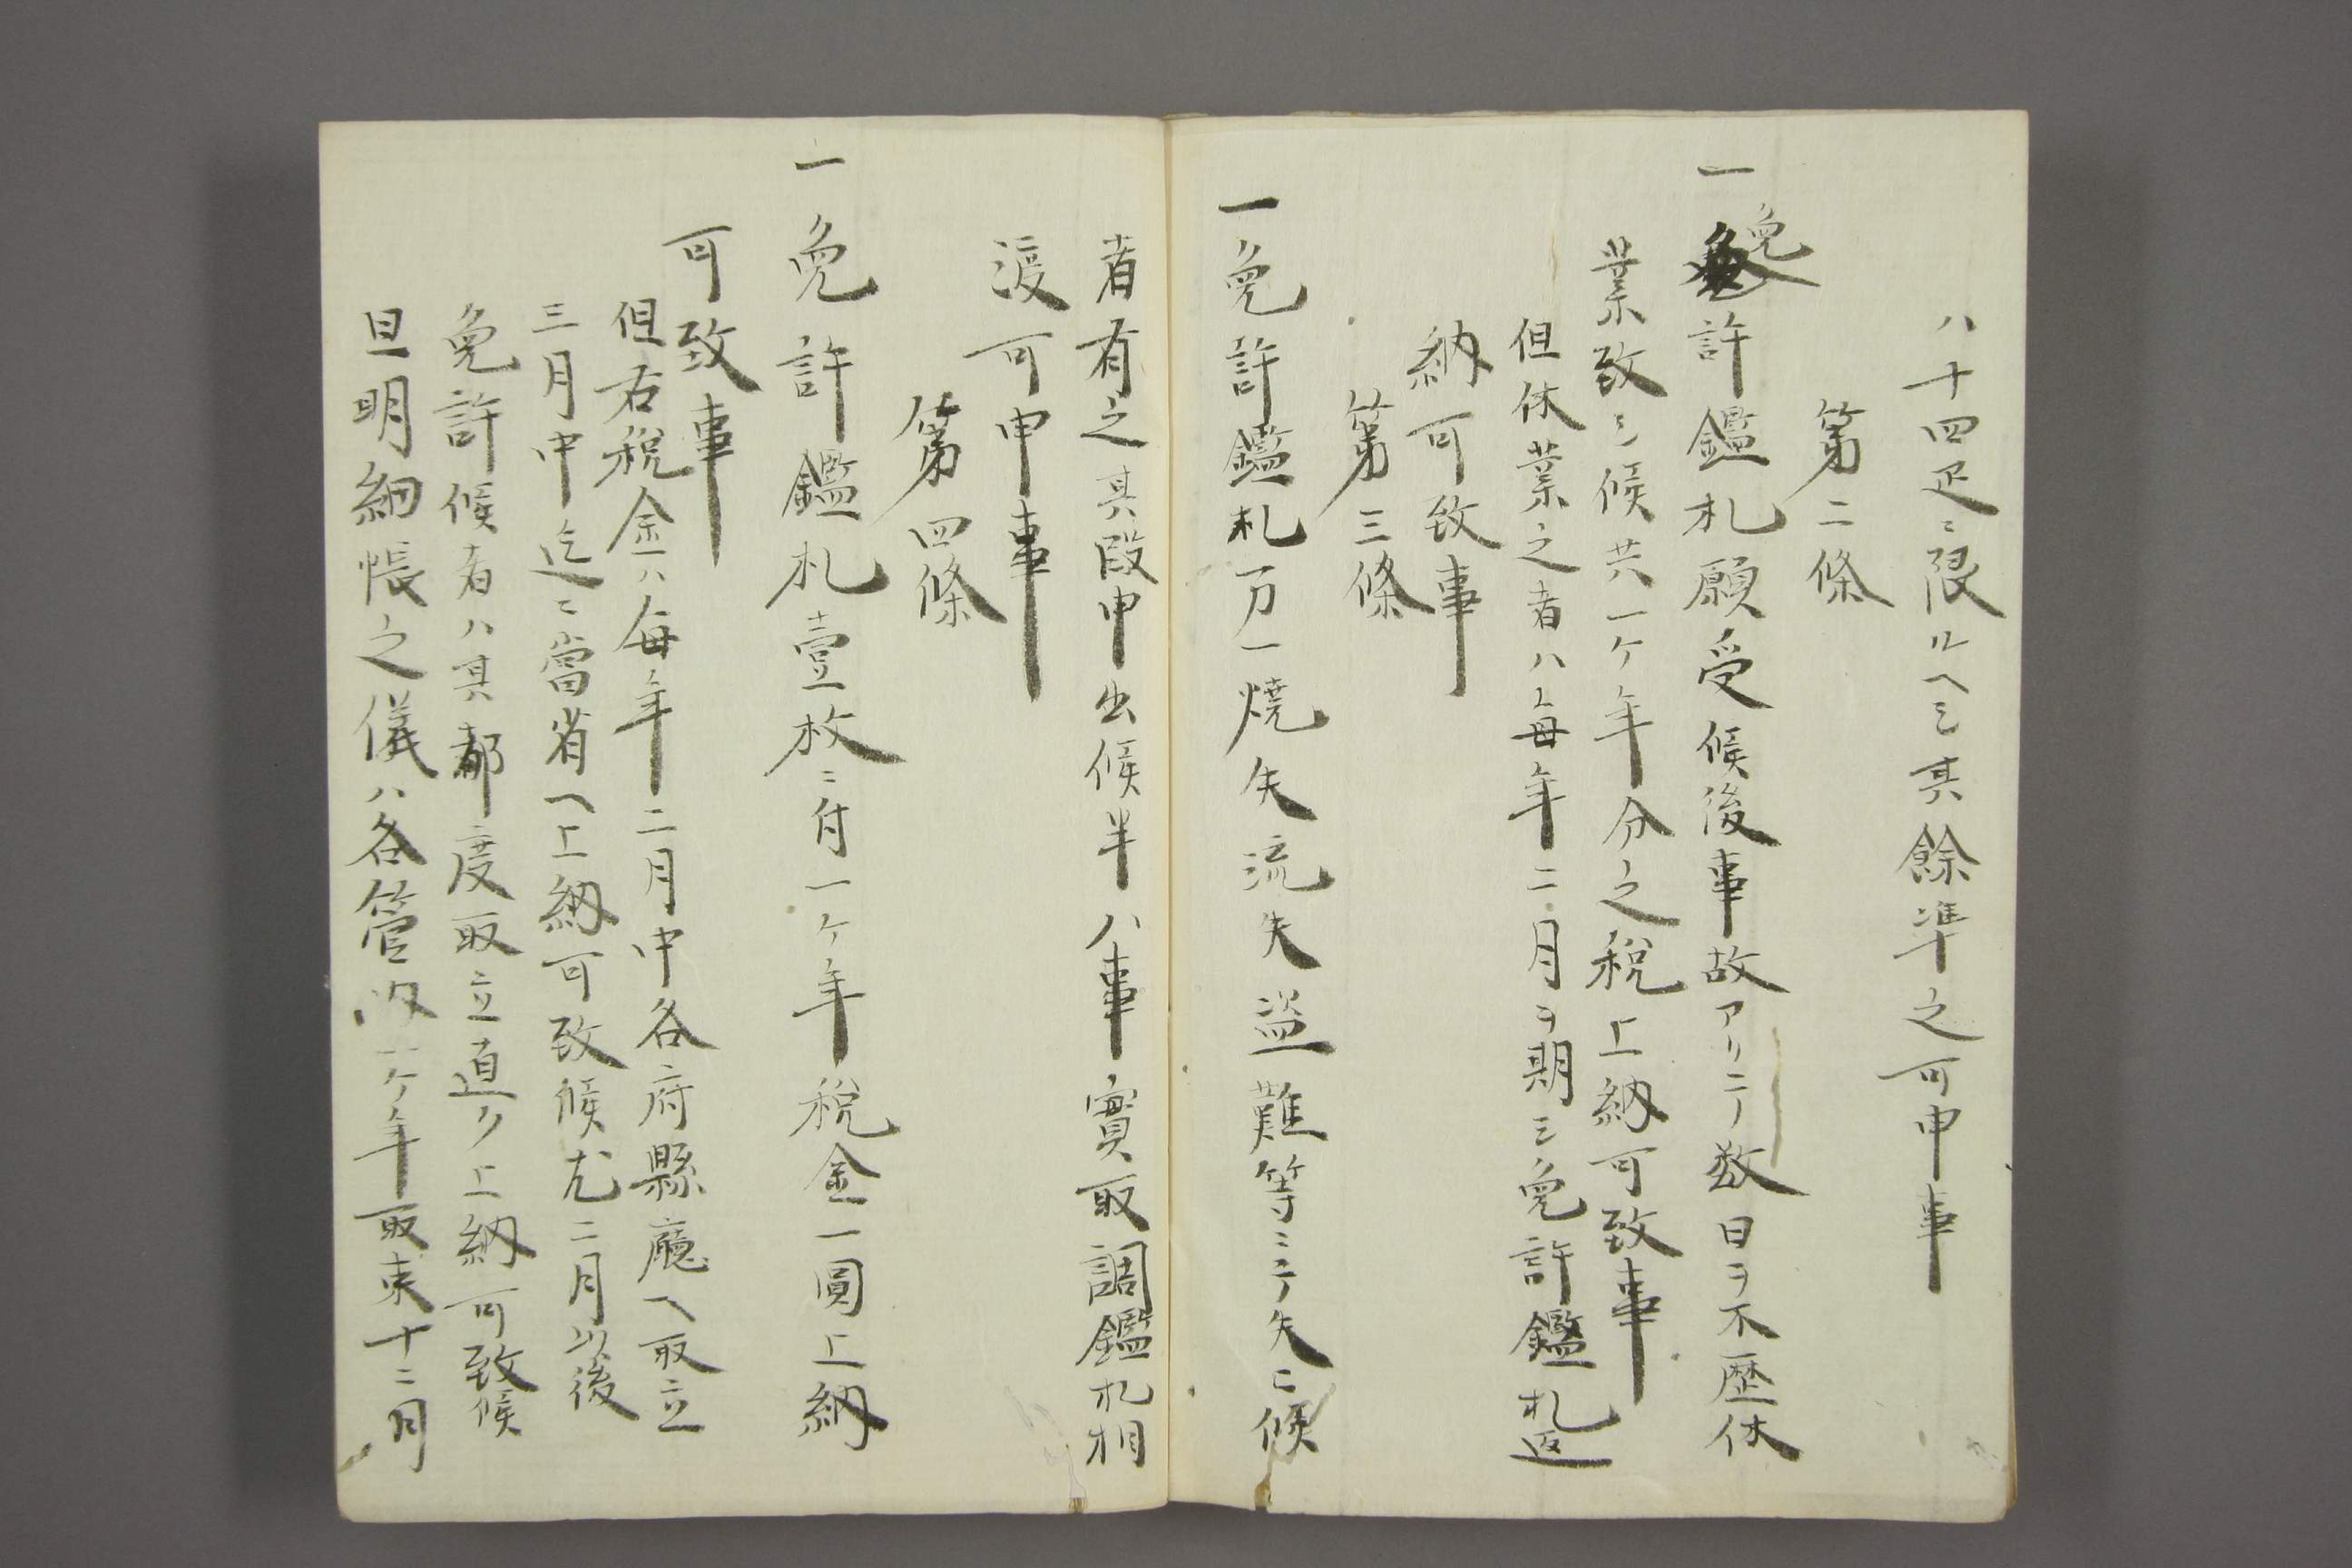 八十四疋ニ限ルヘシ其餘準之可申事
第二條
一免許鑑札願受候後事故アリニテ数日ヲ不歴休
業致シ候共一ケ年分之税上納可致事
但休業之者ハ毎年二月ヲ期シ免許鑑札返
納可致事
第三條
一免許鑑札万一焼失流失盗難等ニテ失ヒ候
者有之其段申出候半ハ事實取調鑑札相
渡可申事
第四條
一免許鑑札壹枚ニ付一ケ年税金一圓上納
可致事
但右税金ハ毎年二月中各府縣廳ヘ取立
三月中迄ニ當省ヘ上納可致候尤二月以後
免許候者ハ其都度取立直ク上納可致候
且明細帳之儀ハ各管内一ケ年取束十二月